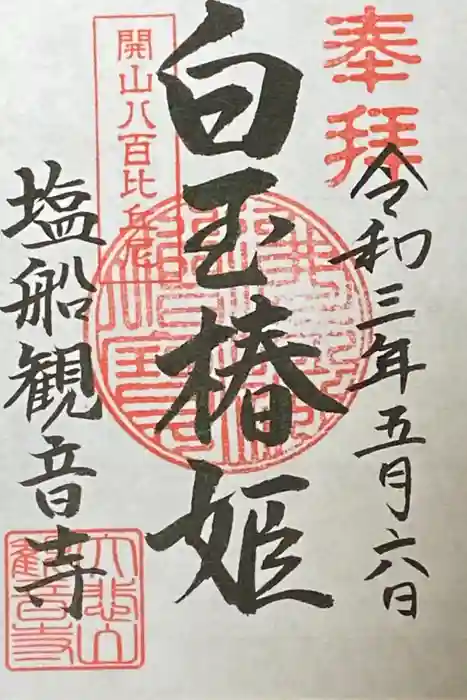 奉拝
令和三年五月六日
白玉椿姫
開山八百比丘尼
塩船観音寺
大悲山
観音寺